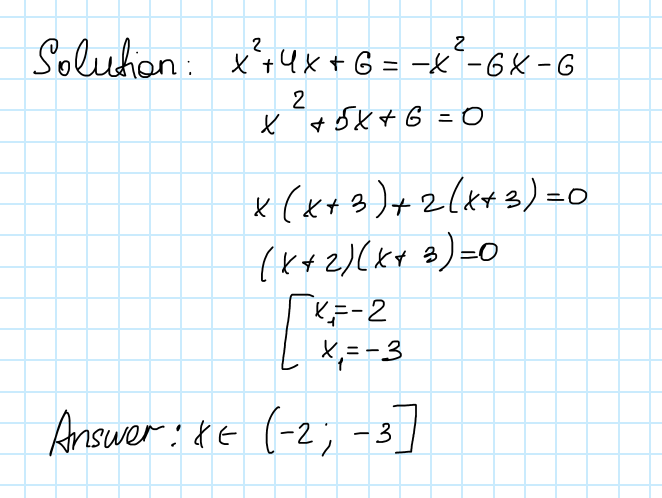 Solution: x²+4x+6=-x²-6x-6
x²+5x+6=0
x(x+3)+2(x+3)=0
(x+2)(x+3)=0
[x₁=-2
x₁=-3
Answer: x∈ (-2; -3]